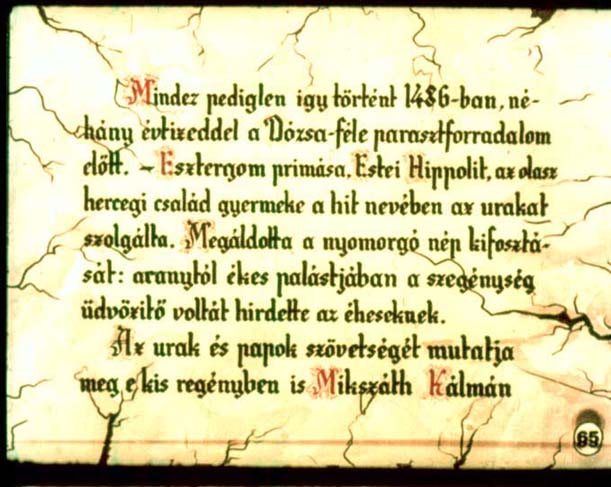 Mindez pediglen igy történt 1486-ban, né-
hány évtizeddel a Dózsa-féle parasztforradalom
előtt. – Esztergom primása, Estei Hippolit, az olasz
hercegi család gyermeke a hit nevében az urakat
szolgálta. Megáldotta a nyomorgó nép kifosztá-
sát: aranytól ékes palástjában a szegénység
üdvözitő voltát hirdette az éheseknek.
Az urak és papok szövetségét mutatja
meg e kis regényben is Mikszáth Kálmán
65